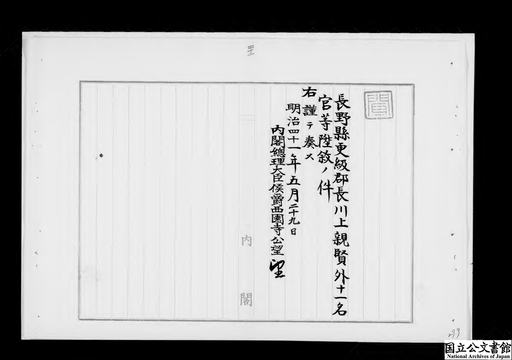 長野縣更級郡長川上親賢外十一名
官等陞敍ノ件
右謹テ奏ス
明治四十一年五月二十九日
内閣總理大臣侯爵西園寺公望
内閣
国立公文書館
National Archives of Japan